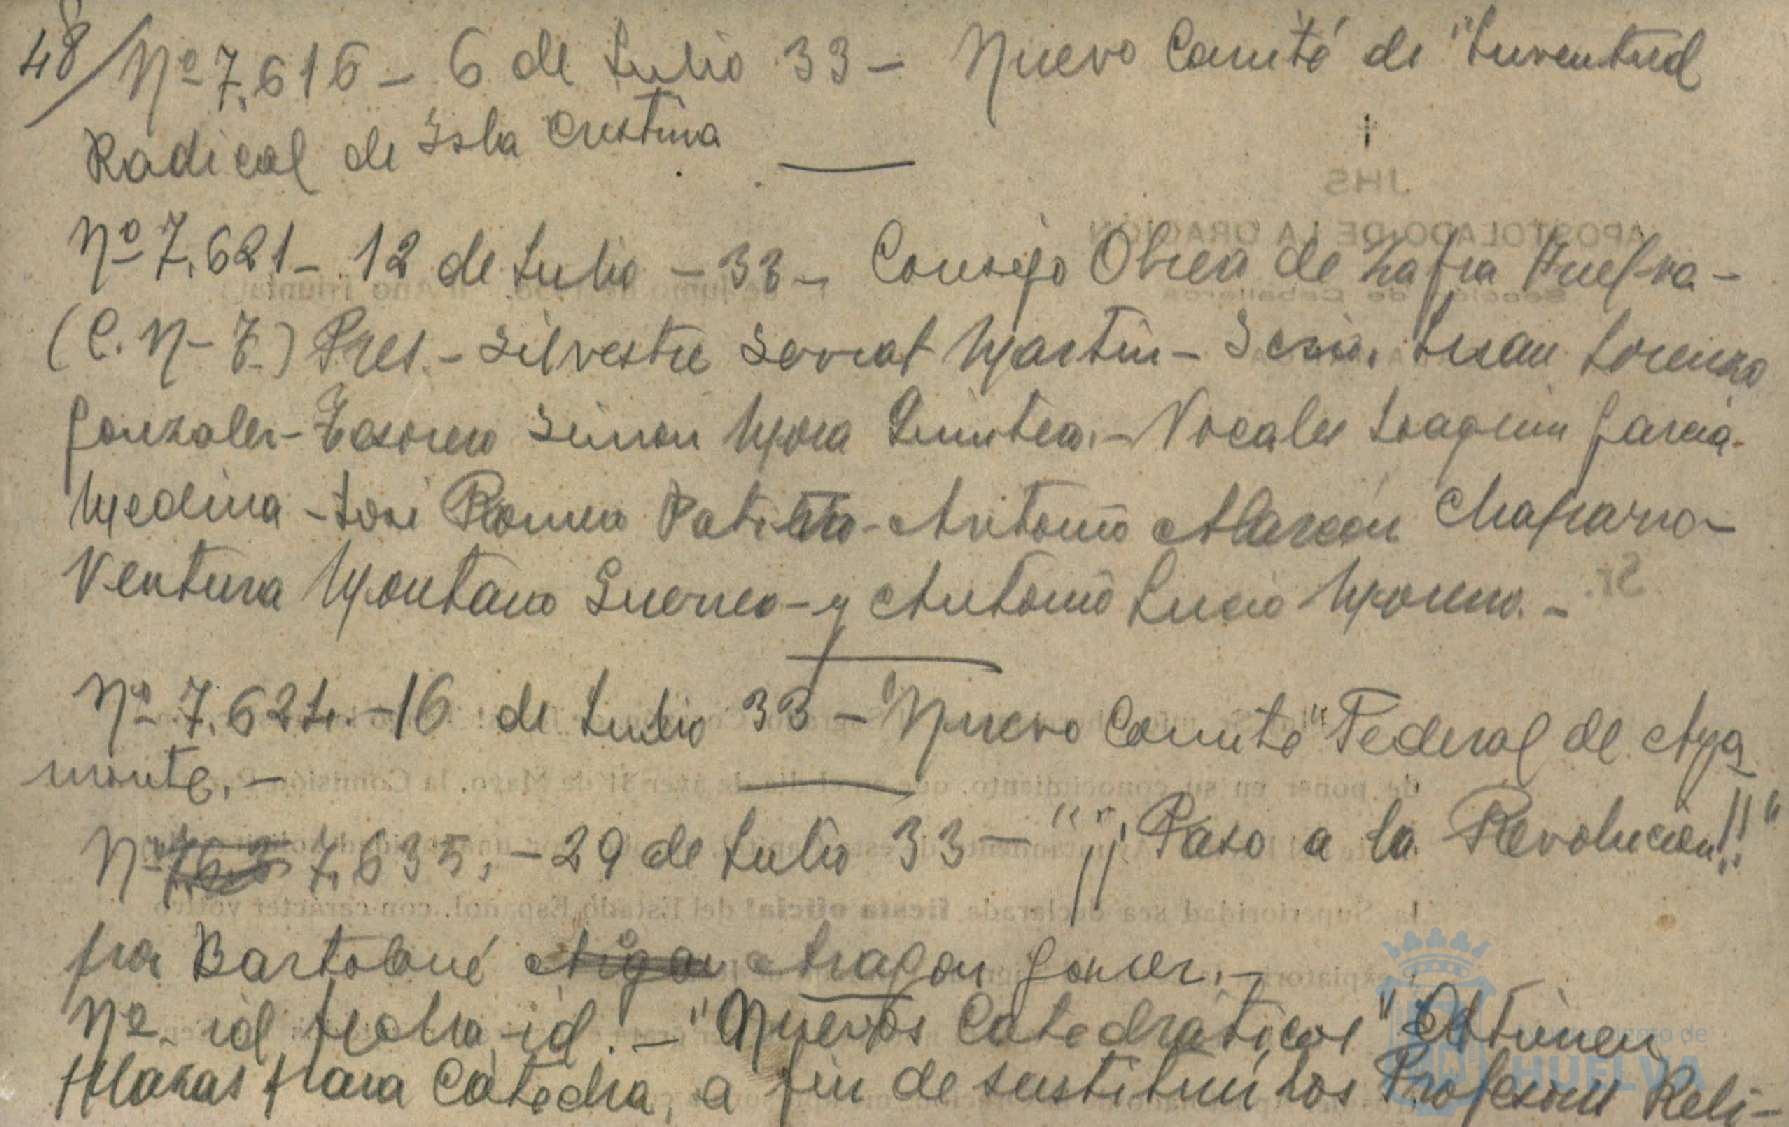 48/ Nº 7.616 - 6 de Julio 33 - Nuevo Comité de "Juventud
Radical de Isla Cristina
Nº 7.621 - 12 de Julio - 33 - Consejo Obrera de Zafra Huelva -
(C. N - T.) Pres. - Silvestre Serrat Martin - Juan Lorenzo
Gonzalez - Tesorero Simon Mora - Vocales Joaquin Garcia -
Medina - José Romero - Antonio Alarcón Chaparro -
Ventura Montano Guerrero - y Antonio Lucio Moreno. -
Nº 7.624. - 16 de Julio 33 - "Nuevo Comité" Federal de Aya
monte. -
Nº 7.635. - 29 de Julio 33 - "¡¡Paso a la Revolución!!"
por Bartolomé Aragon Gomez. -
Nº id fecha id. - "Nuevos Catedráticos" Obtienen
Plazas para Cátedra, a fin de sustituir los Profesores Reli-
JHS
APOSTOLADO DE LA ORACIÓN
Sección de Caballeros
de Junio de 1938. II Año Triunfal
Sr.
de poner en su conocimiento, de ayer 31 de Mayo, la Comisión
la Superioridad sea declarada fiesta oficial del Estado Español, con carácter
HUELVA